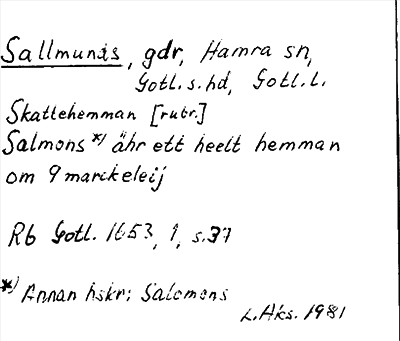 Sallmunds, gdr, Hamra sn,
Gotl. s. hd, Gotl. L.
Skattehemman [rubr.]
Salmons *) ähr ett heelt hemman
om 9 marckeleij
Rb Gotl. 1653, 1, s. 37
*) Annan hskr: Salomons
L. Aks. 1981